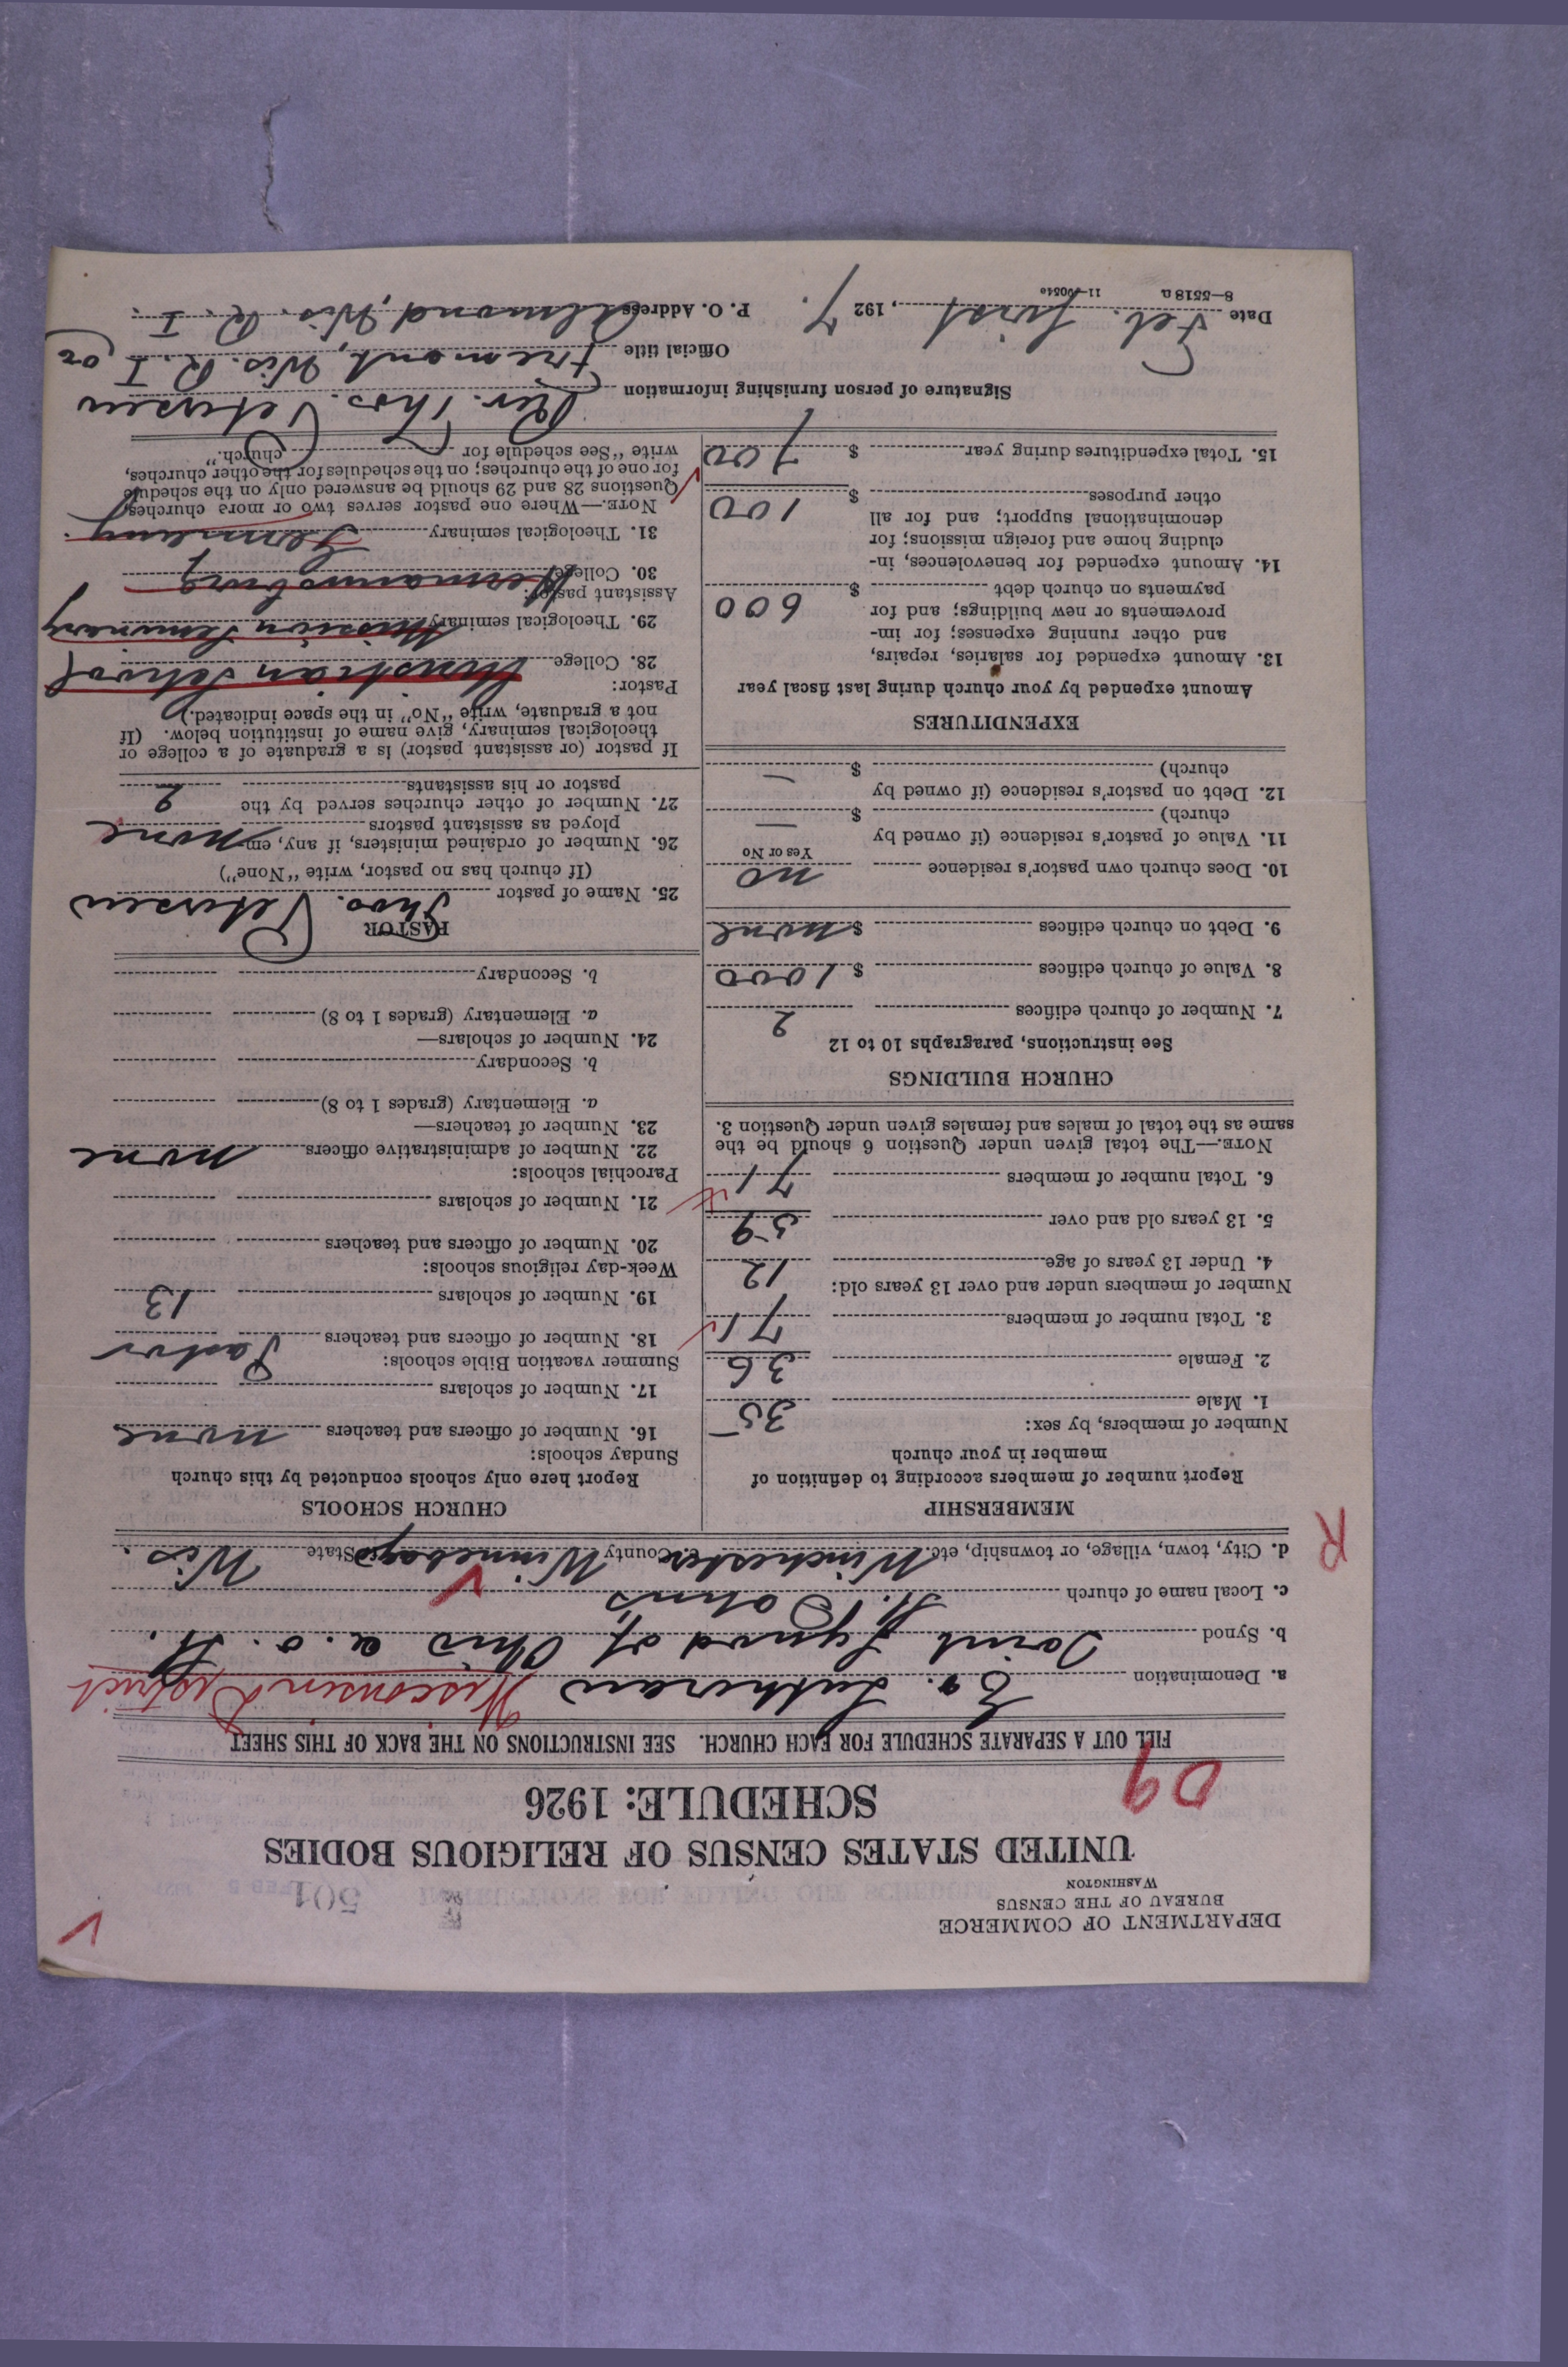 DEPARTMENT OF COMMERCE
BUREAU OF THE CENSUS
WASHINGTON
501
UNITED STATES CENSUS OF RELIGIOUS BODIES
SCHEDULE: 1926
09
FILL OUT A SEPARATE SCHEDULE FOR EACH CHURCH. SEE INSTRUCTIONS ON THE BACK OF THIS SHEET
a. Denomination Ev. Lutheran Wisconsin District
b. Synod Joint Synod of Ohio a. o. St.
c. Local name of church St. Johns
d. City, town, village, or township, etc. Winchester County Winnebago State Wis.
R
MEMBERSHIP
Report number of members according to definition of
member in your church
Number of members, by sex:
1. Male 35
2. Female 36
3. Total number of members 71
Number of members under and over 13 years old:
4. Under 13 years of age 12
5. 13 years old and over 59
6. Total number of members 71
NOTE.—The total given under Question 6 should be the
same as the total of males and females given under Question 3.
CHURCH BUILDINGS
See instructions, paragraphs 10 to 12
7. Number of church edifices 2
8. Value of church edifices $ 1000
9. Debt on church edifices $ none
10. Does church own pastor's residence no
Yes or No
11. Value of pastor's residence (if owned by
church) $ —
12. Debt on pastor's residence (if owned by
church) $ —
EXPENDITURES
Amount expended by your church during last fiscal year
13. Amount expended for salaries, repairs,
and other running expenses; for im-
provements or new buildings; and for
payments on church debt $ 600
14. Amount expended for benevolences, in-
cluding home and foreign missions; for
denominational support; and for all
other purposes $ 100
15. Total expenditures during year $ 700
CHURCH SCHOOLS
Report here only schools conducted by this church
Sunday schools:
16. Number of officers and teachers none
17. Number of scholars
Summer vacation Bible schools:
18. Number of officers and teachers Pastor
19. Number of scholars 13
Week-day religious schools:
20. Number of officers and teachers
21. Number of scholars
Parochial schools:
22. Number of administrative officers none
23. Number of teachers—
a. Elementary (grades 1 to 8)
b. Secondary
24. Number of scholars—
a. Elementary (grades 1 to 8)
b. Secondary
PASTOR
25. Name of pastor Thos. Petersen
(If church has no pastor, write "None")
26. Number of ordained ministers, if any, em-
ployed as assistant pastors none
27. Number of other churches served by the
pastor or his assistants 2
If pastor (or assistant pastor) is a graduate of a college or
theological seminary, give name of institution below. (If
not a graduate, write "No" in the space indicated.)
Pastor:
28. College Christian School
29. Theological seminary Mission Seminary
Assistant pastor:
30. College Hermannsburg
31. Theological seminary Germany.
NOTE.—Where one pastor serves two or more churches,
Questions 28 and 29 should be answered only on the schedule
for one of the churches; on the schedules for the other churches,
write "See schedule for church."
Signature of person furnishing information Rev. Thos. Petersen
Official title Fremont, Wis. R. I or
Date Feb. first, 1927. P. O. Address Almond, Wis. R. I.
8—5518 a